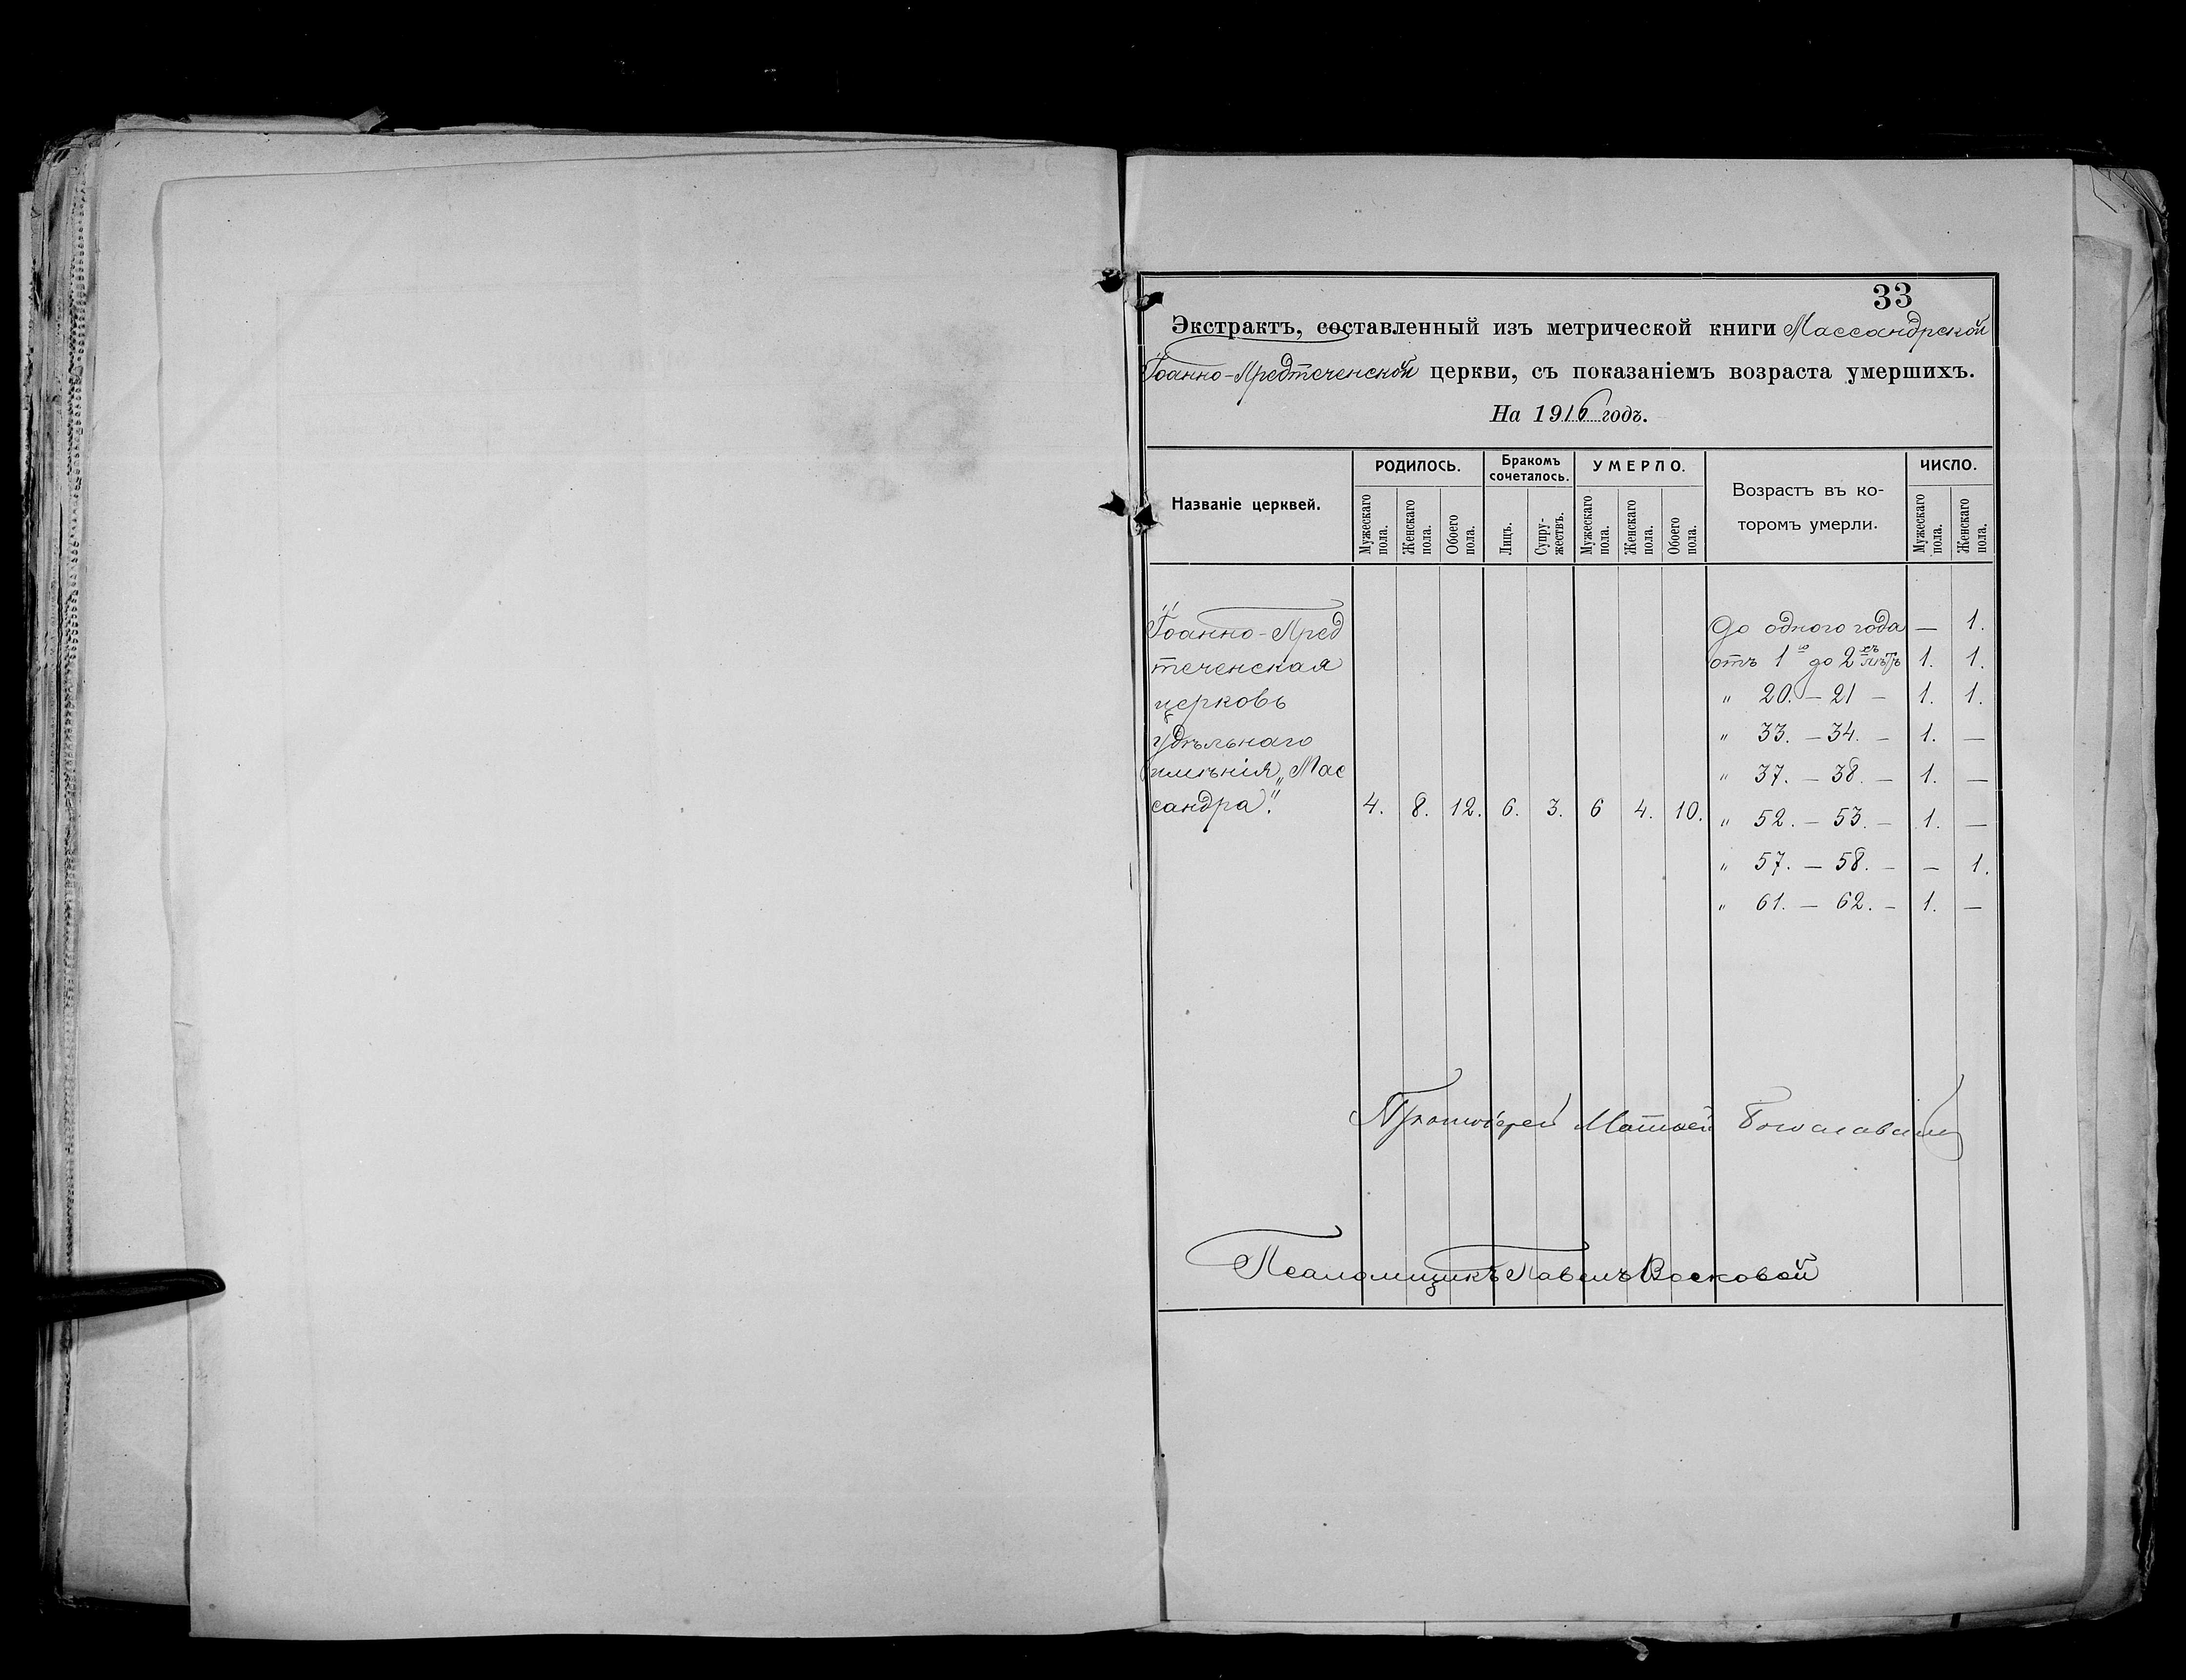 33
Экстрактъ, составленный изъ метрической книги Массандрской
Іоанно-Предтеченской церкви, съ показаніемъ возраста умершихъ.
На 1916 годъ.
Названіе церквей.
РОДИЛОСЬ.
Мужескаго пола.
Женскаго пола.
Обоего пола.
Бракомъ сочеталось.
Лицъ.
Супру-жествъ.
УМЕРЛО.
Мужескаго пола.
Женскаго пола.
Обоего пола.
Возрастъ въ ко-
торомъ умерли.
ЧИСЛО.
Мужескаго пола.
Женскаго пола.
Іоанно-Пред
теченская
церковь
удѣльнаго
имѣнія „Мас
сандра".
4. 8. 12. 6. 3. 6 4. 10.
До одного года — 1.
отъ 1го до 2хъ лѣтъ 1. 1.
" 20. — 21 — 1. 1.
" 33. — 34. — 1. —
" 37. — 38. — 1. —
" 52. — 53. — 1. —
" 57. — 58. — — 1.
" 61. — 62. — 1. —
Протоіерей Матвей
Псаломщикъ Павелъ Восковой